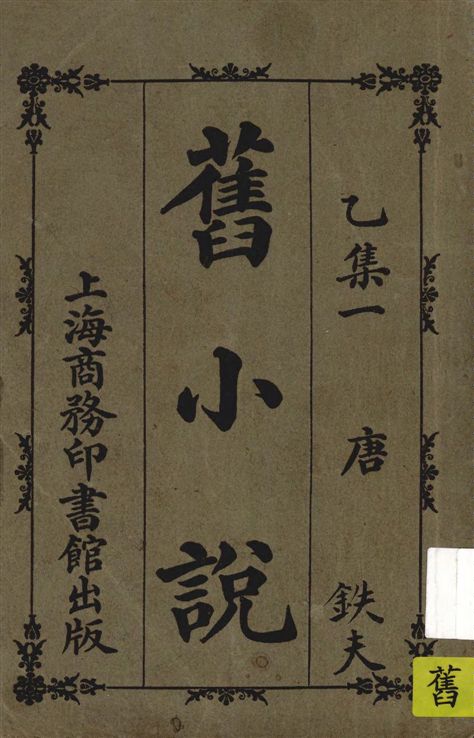 乙集一 唐 鉄夫
舊小說
上海商務印書館出版
舊